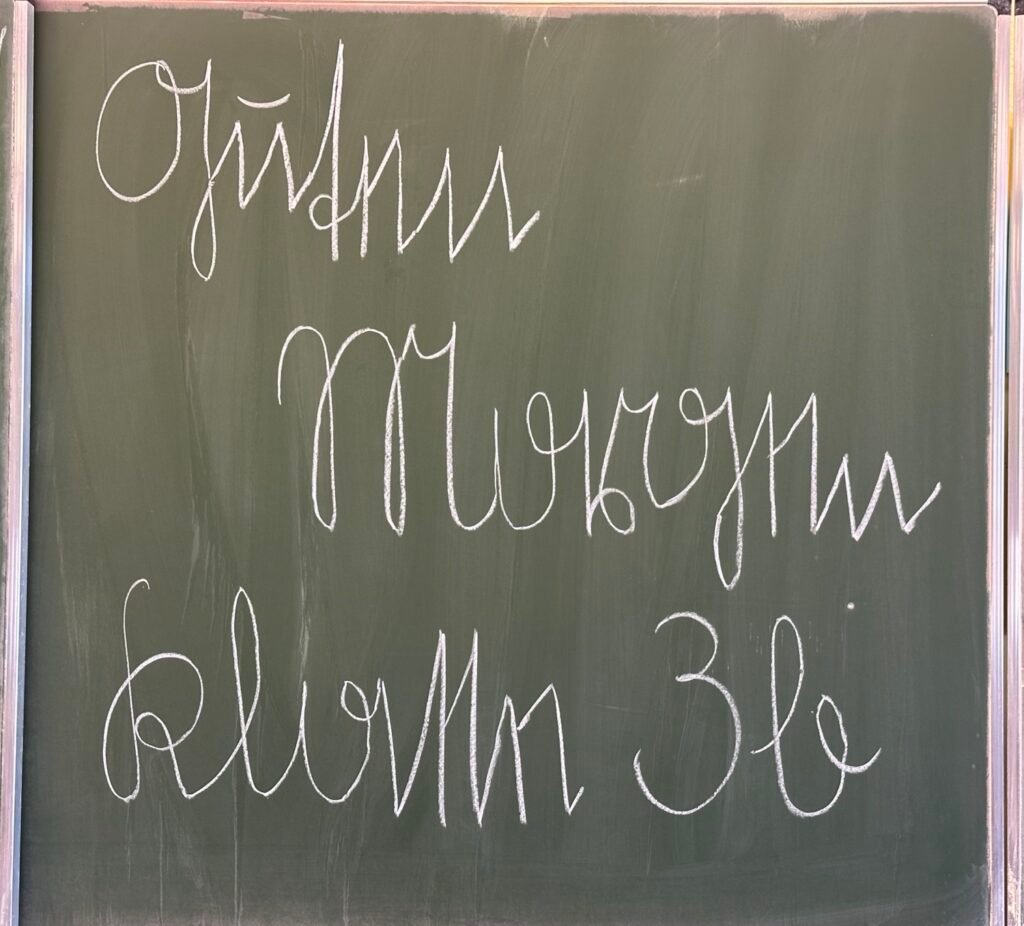 Guten
Morgen
Klasse 3b